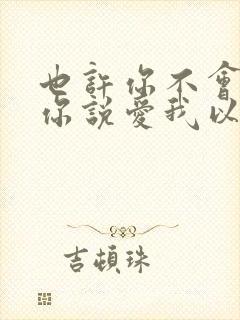 也許你不會
你說愛我以
吉頓珠